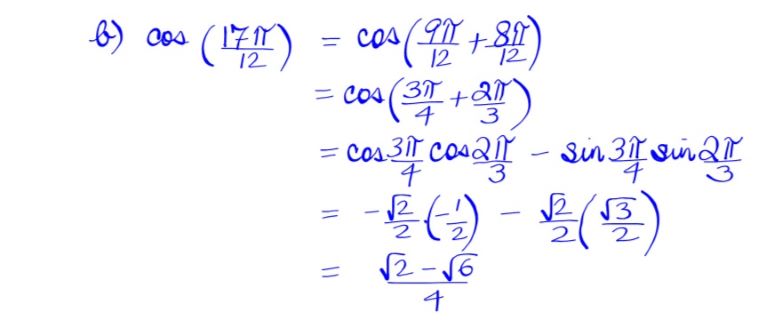 b) cos (17π/12) = cos(9π/12 + 8π/12)
= cos(3π/4 + 2π/3)
= cos 3π/4 cos 2π/3 - sin 3π/4 sin 2π/3
= -√2/2 (-1/2) - √2/2 (√3/2)
= (√2 - √6)/4